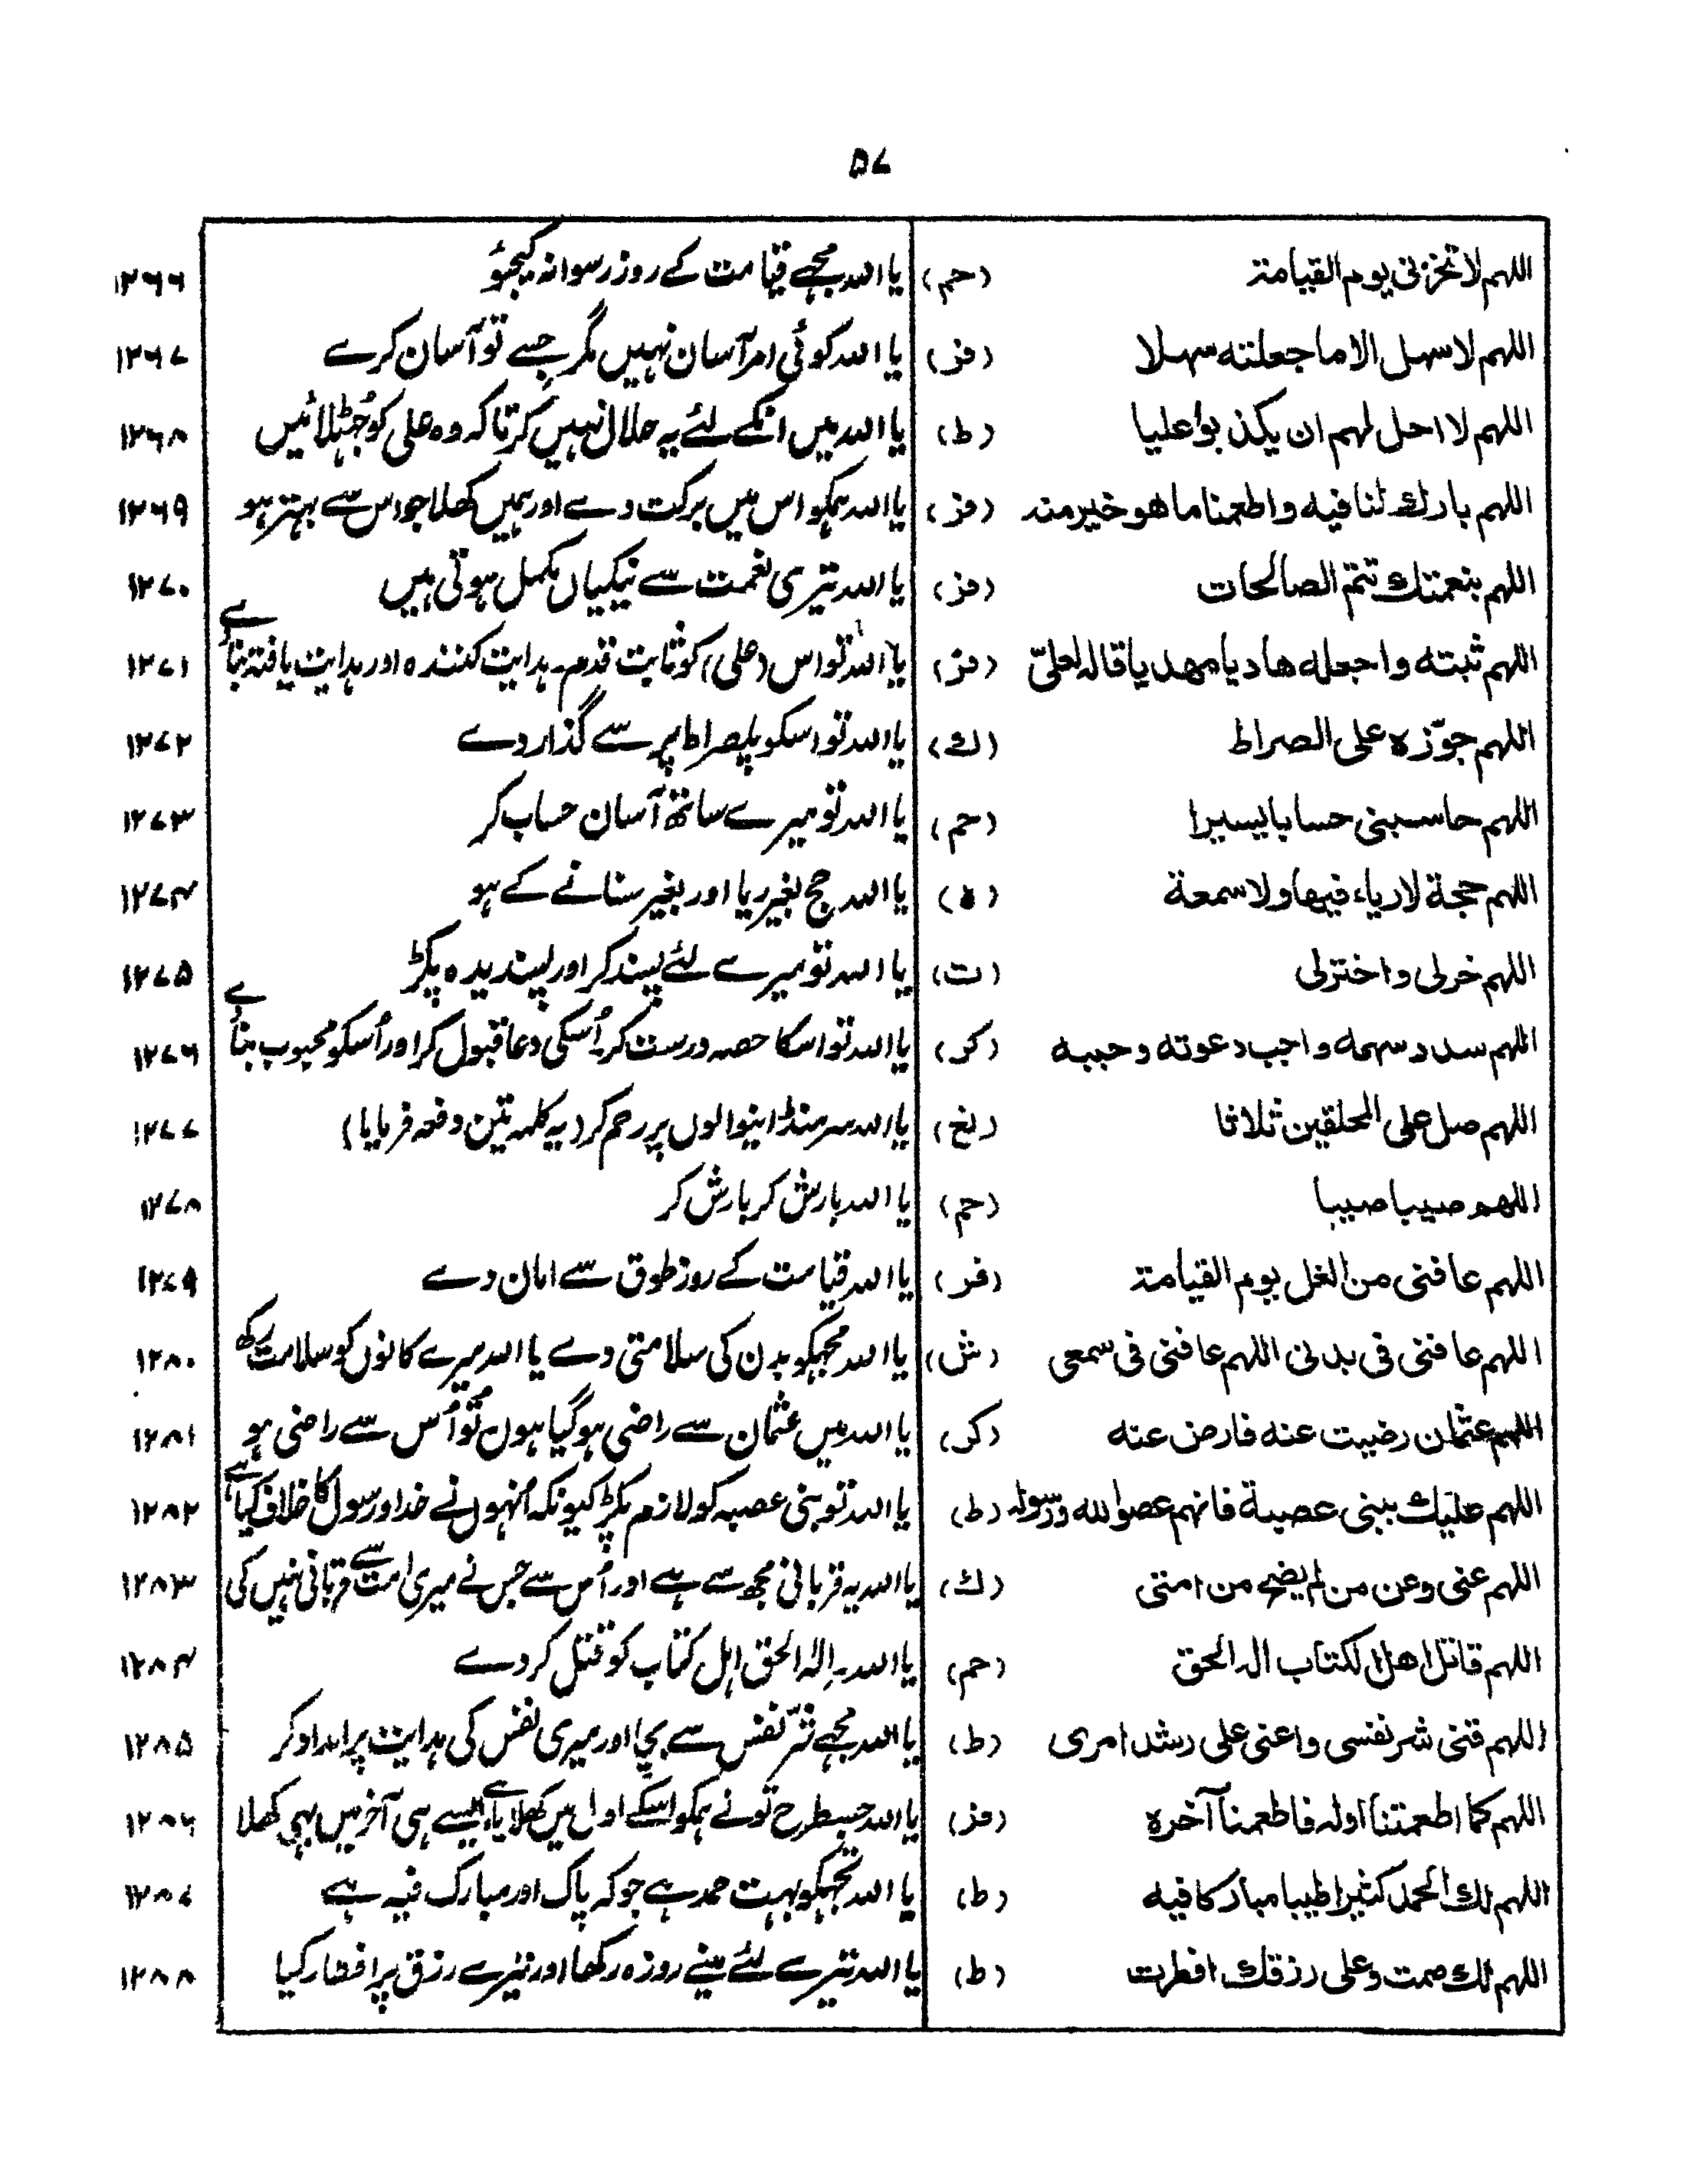 ۵۷
اللہم لا تخزنی یوم القیامۃ (حم) یا اللہ مجھے قیامت کے روز رسوا نہ کیجیؤ ۱۲۶۶
اللہم لا سہل الا ما جعلتہ سہلا (فز) یا اللہ کوئی امر آسان نہیں مگر جسے تو آسان کرے ۱۲۶۷
اللہم لا احل لہم ان یکذبوا علیا (ط) یا اللہ میں انکے لئے یہ حلال نہیں کرتا کہ وہ علی کو جُٹھلائیں ۱۲۶۸
اللہم بارك لنا فیہ واطعمنا ما ھو خیر منہ (فز) یا اللہ ہمکو اس میں برکت دے اور ہمیں کھلا جو اس سے بہتر ہو ۱۲۶۹
اللہم بنعمتك تتم الصالحات (فز) یا اللہ تیری نعمت سے نیکیاں مکمل ہوتی ہیں ۱۲۷۰
اللہم ثبتہ واجعلہ ھادیا مھدیا قالہ لعلیّ (فز) یا اللہ تو اس (علی) کو ثابت قدم۔ ہدایت کنندہ اور ہدایت یافتہ بنا دے ۱۲۷۱
اللہم جوّزہ علی الصراط (ك) یا اللہ تو اسکو پلصراط پر سے گذار دے ۱۲۷۲
اللہم حاسبنی حسابا یسیرا (حم) یا اللہ تو میرے ساتھ آسان حساب کر ۱۲۷۳
اللہم حجۃ لا ریاء فیہا ولا سمعۃ (ہ) یا اللہ حج بغیر ریا اور بغیر سنانے کے ہو ۱۲۷۴
اللہم خرلی واخترلی (ت) یا اللہ تو میرے لئے پسند کر اور پسندیدہ پکڑ ۱۲۷۵
اللہم سدد سہمہ واجب دعوتہ وحببہ (کر) یا اللہ تو اسکا حصہ درست کر۔ اُسکی دعا قبول کر اور اُسکو محبوب بنا دے ۱۲۷۶
اللہم صل علی المحلقین ثلاثا (بغ) یا اللہ سر منڈانیوالوں پر رحم کر (یہ کلمہ تین دفعہ فرمایا) ۱۲۷۷
اللھم صیبا صیبا (حم) یا اللہ بارش کر بارش کر ۱۲۷۸
اللہم عافنی من الغل یوم القیامۃ (فر) یا اللہ قیامت کے روز طوق سے امان دے ۱۲۷۹
اللہم عافنی فی بدنی اللہم عافنی فی سمعی (ش) یا اللہ مجھکو بدن کی سلامتی دے یا اللہ میرے کانوں کو سلامت رکھ ۱۲۸۰
اللہم عثمان رضیت عنہ فارض عنہ (کر) یا اللہ میں عثمان سے راضی ہو گیا ہوں تُو اُس سے راضی ہو ۱۲۸۱
اللہم علیك ببنی عصیۃ فانہم عصوا للہ ورسولہ (ط) یا اللہ تو بنی عصیہ کو لازم پکڑ کیونکہ اُنہوں نے خدا و رسول کا خلاف کیا ہے ۱۲۸۲
اللہم عنی وعن من لم یضح من امتی (ك) یا اللہ یہ قربانی مجھ سے ہے اور اُس سے جس نے میری امت سے قربانی نہیں کی ۱۲۸۳
اللہم قاتل اھل الکتاب الہ الحق (حم) یا اللہ۔ اِلہ الحق اہل کتاب کو قتل کر دے ۱۲۸۴
اللہم قنی شر نفسی واعنی علی رشد امری (ط) یا اللہ مجھے شرّ نفس سے بچا اور میری نفس کی ہدایت پر امداد کر ۱۲۸۵
اللہم کما اطعمتنا اولہ فاطعمنا آخرہ (فز) یا اللہ جسطرح تو نے ہمکو اسکے اول میں کھلایا ہے ایسے ہی آخر میں بھی کھلا ۱۲۸۶
اللہم لك الحمد کثیرا طیبا مبارکا فیہ (ط) یا اللہ تجھکو بہت حمد ہے جو کہ پاک اور مبارک فیہ ہے ۱۲۸۷
اللہم لك صمت وعلی رزقك افطرت (ط) یا اللہ تیرے لئے مینے روزہ رکھا اور تیرے رزق پر افطار کیا ۱۲۸۸